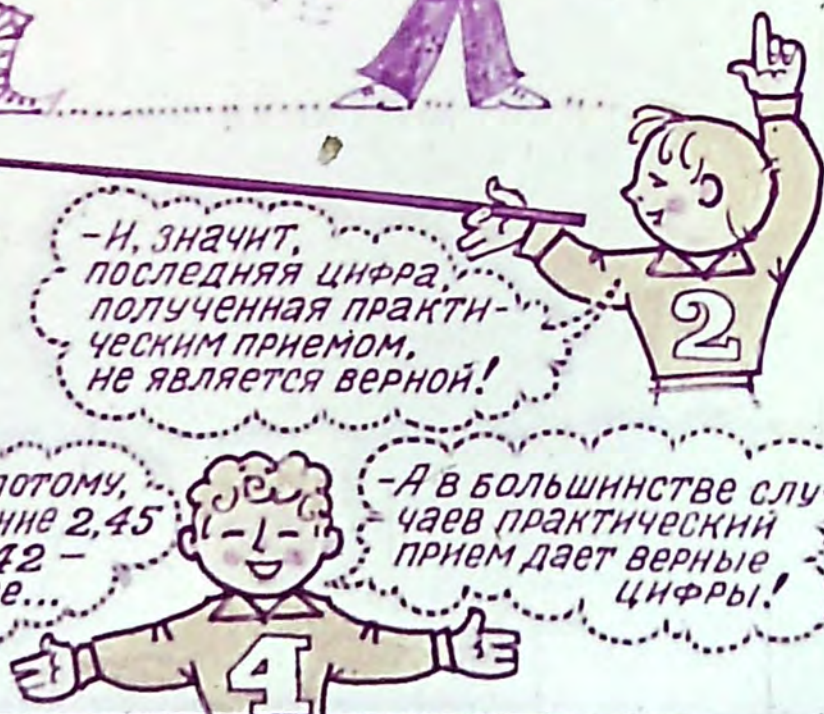 -И, ЗНАЧИТ,
ПОСЛЕДНЯЯ ЦИФРА,
ПОЛУЧЕННАЯ ПРАКТИ-
ЧЕСКИМ ПРИЕМОМ,
НЕ ЯВЛЯЕТСЯ ВЕРНОЙ!
2
ПОТОМУ,
НИЕ 2,45
42 –
Е...
4
-А В БОЛЬШИНСТВЕ СЛУ-
ЧАЕВ ПРАКТИЧЕСКИЙ
ПРИЕМ ДАЕТ ВЕРНЫЕ
ЦИФРЫ!